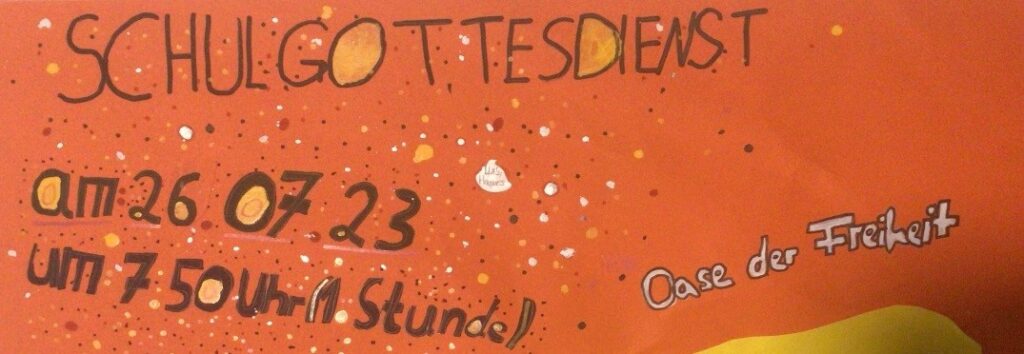 SCHULGOTTESDIENST
am 26.07.23
um 7 50 Uhr (1. Stunde)
Oase der Freiheit